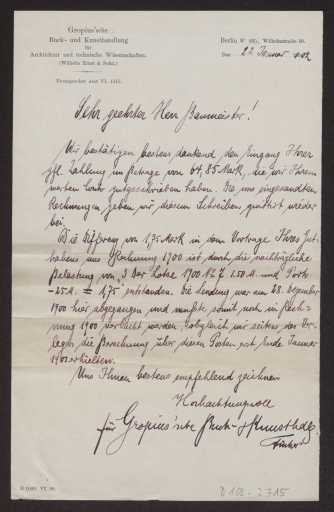 Gropius'sche
Buch- und Kunsthandlung
für
Architektur und technische Wissenschaften.
(Wilhelm Ernst & Sohn.)
Fernsprecher Amt VI. 1115.
Berlin W (66), Wilhelmstraße 90.
Den 22 Januar 1902
Sehr geehrter Herr Baumeister!
Wir bestätigen bestens dankend den Eingang Ihrer
gfl. Zahlung im Betrage von 64,85 Mark, die wir Ihrem
werten Conto gutgeschrieben haben. Die uns eingesandten
Rechnungen geben wir diesem Schreiben quittirt wieder
bei.
Die Differenz von 1,75 Mark in dem Vortrage Ihres Gut-
habens aus Rechnung 1900 ist durch die nachträgliche
Belastung von 1,50 M. und Porto
-25 M. = 1,75 entstanden. Die Sendung war am 28. Dezember
1900 hier abgegangen und musste somit noch in Rech-
nung 1900 werden, wir seitens des Ver-
legers die Berechnung über diesen Posten erst Ende Januar
1901 erhielten.
Uns Ihnen bestens empfehlend zeichnen
Hochachtungsvoll
für Gropius'sche Buch- & Kunsthdlg
D 102-2715